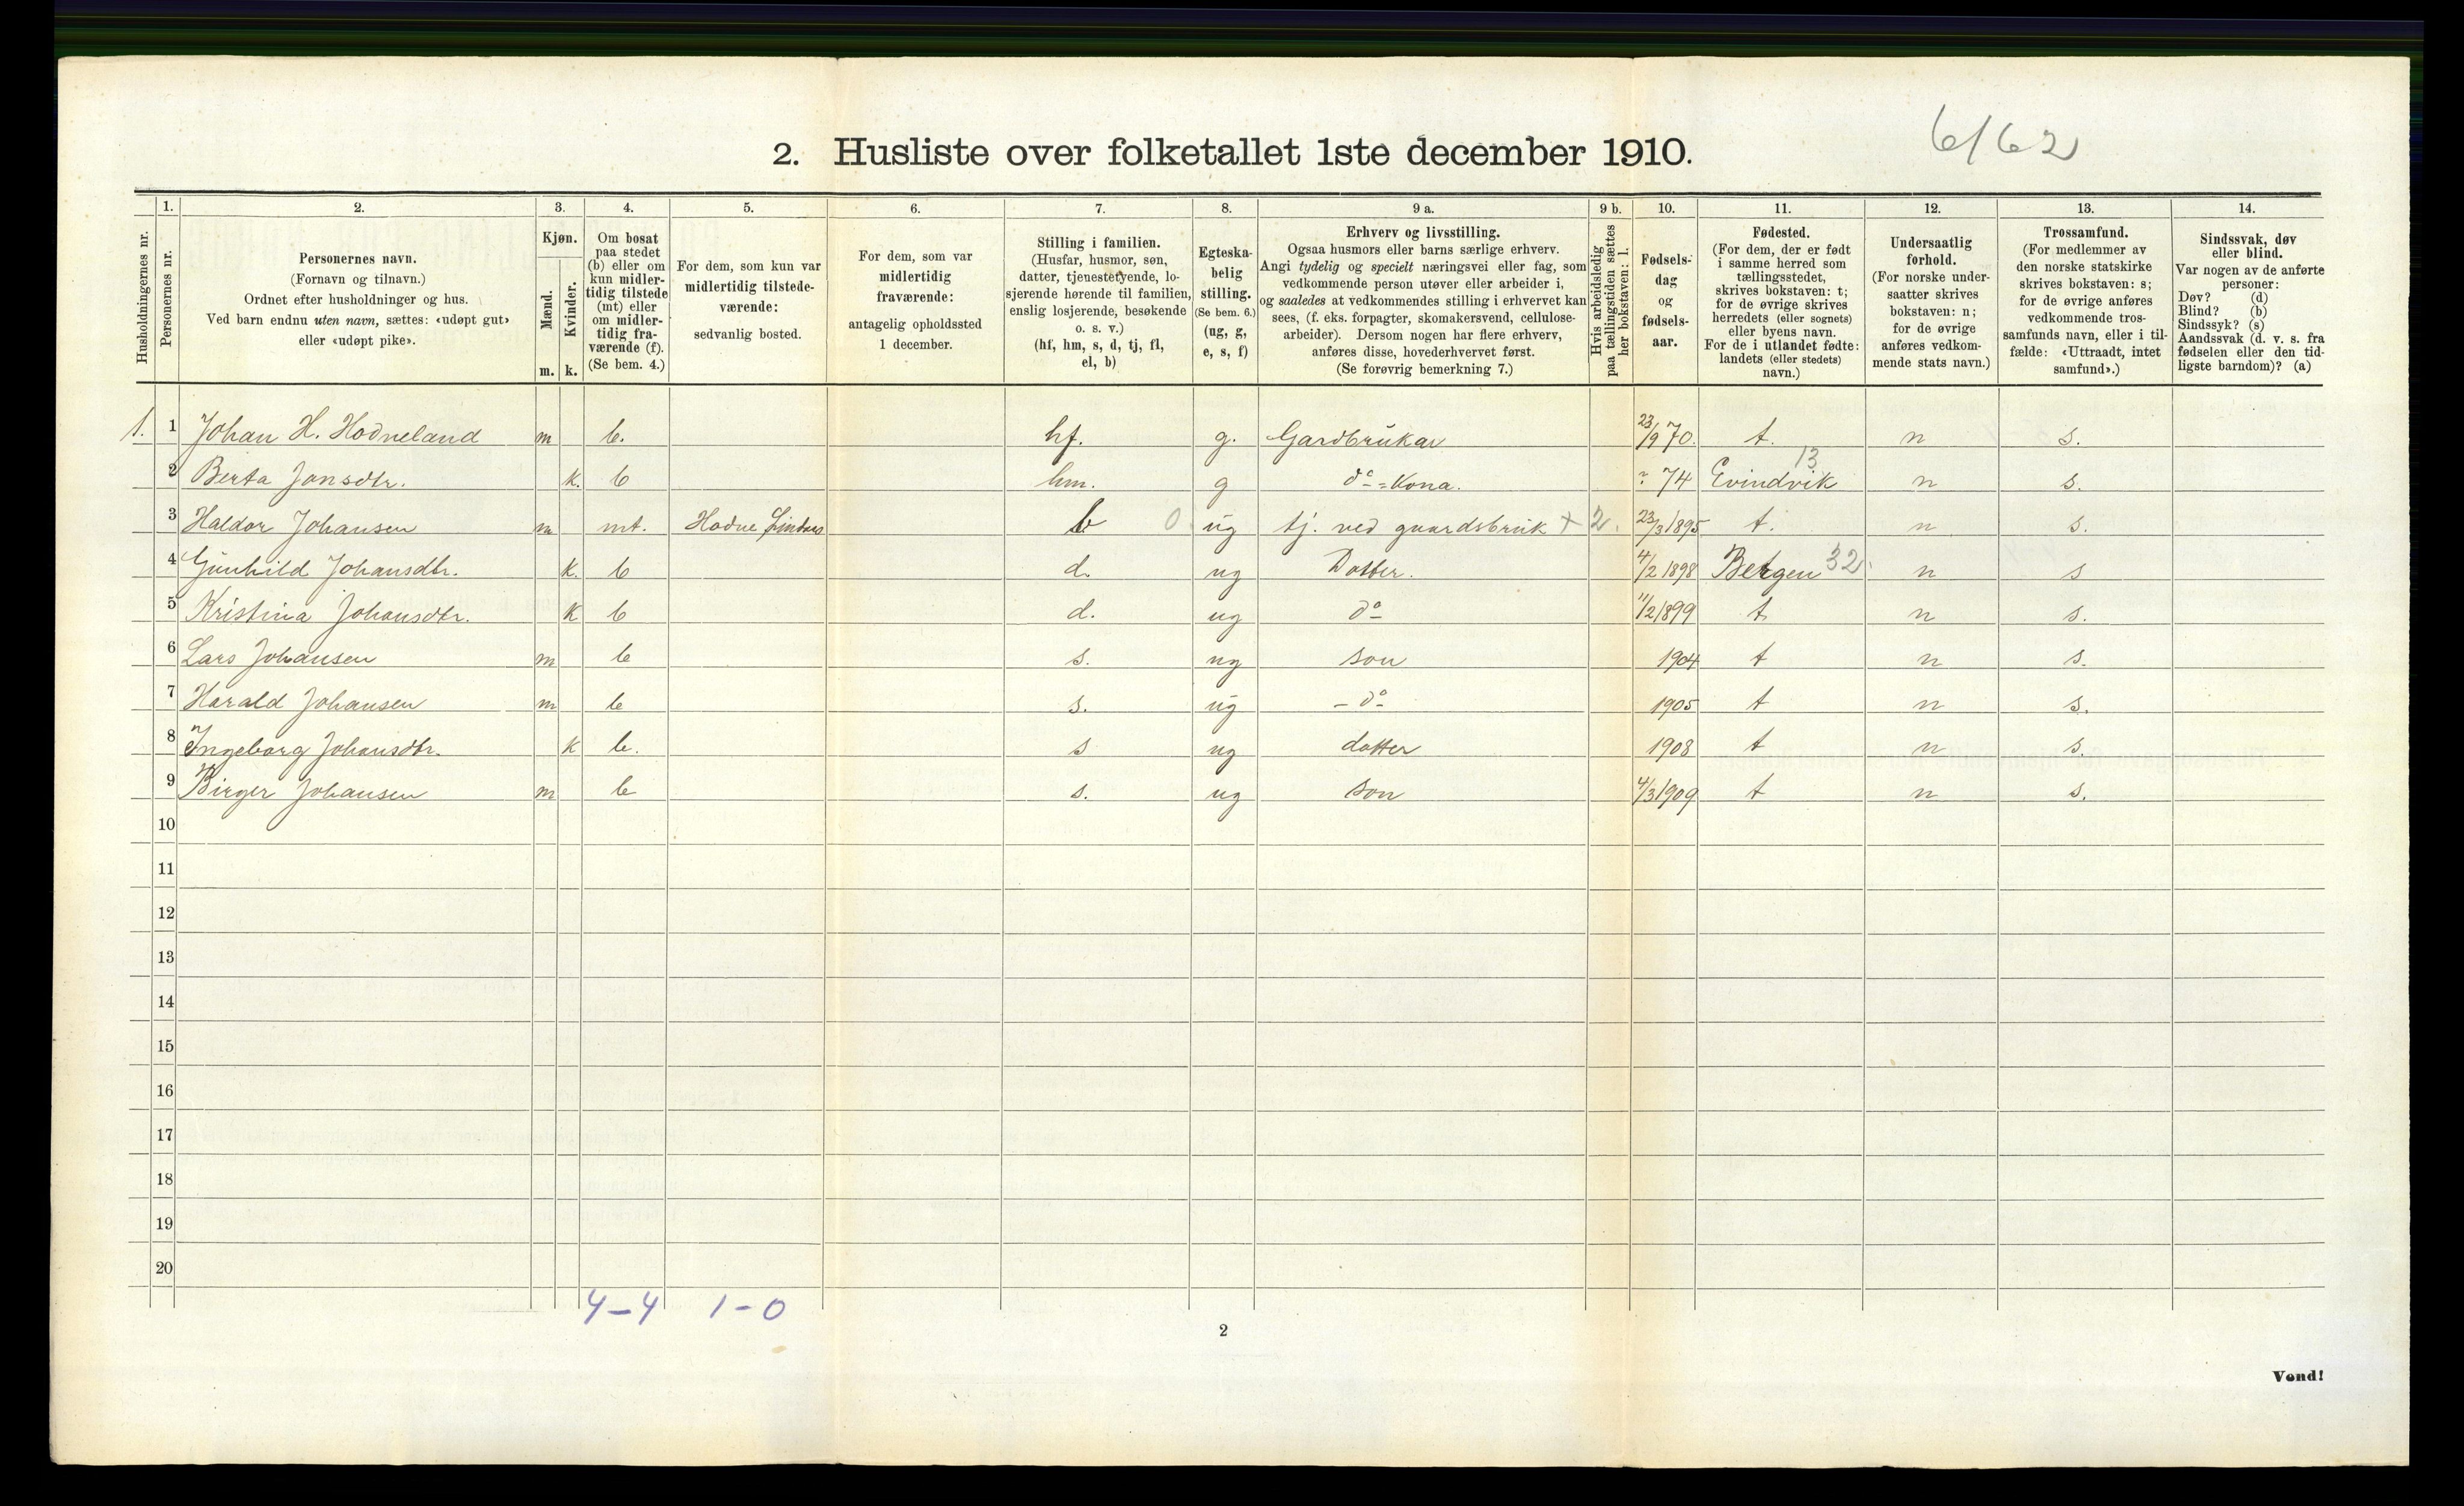 6/62
2. Husliste over folketallet 1ste december 1910.
Husholdningernes nr.
1.
Personernes nr.
2.
Personernes navn.
(Fornavn og tilnavn.)
Ordnet efter husholdninger og hus.
Ved barn endnu uten navn, sættes: «udøpt gut»
eller «udøpt pike».
3.
Kjøn.
Mænd.
Kvinder.
m. k.
4.
Om bosat
paa stedet
(b) eller om
kun midler-
tidig tilstede
(mt) eller
om midler-
tidig fra-
værende (f).
(Se bem. 4.)
5.
For dem, som kun var
midlertidig tilstede-
værende:
sedvanlig bosted.
6.
For dem, som var
midlertidig
fraværende:
antagelig opholdssted
1 december.
7.
Stilling i familien.
(Husfar, husmor, søn,
datter, tjenestetyende, lo-
sjerende hørende til familien,
enslig losjerende, besøkende
o. s. v.)
(hf, hm, s, d, tj, fl,
el, b)
8.
Egteska-
belig
stilling.
(Se bem. 6.)
(ug, g,
e, s, f)
9 a.
Erhverv og livsstilling.
Ogsaa husmors eller barns særlige erhverv.
Angi tydelig og specielt næringsvei eller fag, som
vedkommende person utøver eller arbeider i,
og saaledes at vedkommendes stilling i erhvervet kan
sees, (f. eks. forpagter, skomakersvend, cellulose-
arbeider). Dersom nogen har flere erhverv,
anføres disse, hovederhvervet først.
(Se forøvrig bemerkning 7.)
9 b.
Hvis arbeidsledig
paa tællingstiden sættes
her bokstaven: l.
10.
Fødsels-
dag
og
fødsels-
aar.
11.
Fødested.
(For dem, der er født
i samme herred som
tællingsstedet,
skrives bokstaven: t;
for de øvrige skrives
herredets (eller sognets)
eller byens navn.
For de i utlandet fødte:
landets (eller stedets)
navn.)
12.
Undersaatlig
forhold.
(For norske under-
saatter skrives
bokstaven: n;
for de øvrige
anføres vedkom-
mende stats navn.)
13.
Trossamfund.
(For medlemmer av
den norske statskirke
skrives bokstaven: s;
for de øvrige anføres
vedkommende tros-
samfunds navn, eller i til-
fælde: «Uttraadt, intet
samfund».)
14.
Sindssvak, døv
eller blind.
Var nogen av de anførte
personer:
Døv? (d)
Blind? (b)
Sindssyk? (s)
Aandssvak (d. v. s. fra
fødselen eller den tid-
ligste barndom)? (a)
1. 1 Johan H. Hodneland m b. hf. g. Gardbrukar 23/9 70. t. n s.
2 Berta Jonsdtr. k. b hm. g do = Kona. ? 74 Evindvik 13 n s.
3 Haldor Johansen m mt. Hodne Lindaas b 0 ug tj. ved guardsbruk + 2. 23/3 1895 t. n s.
4 Gunhild Johansdtr. k. b d. ug Dotter. 4/2 1898 Bergen 32 n s
5 Kristina Johansdtr. k b d. ug do 11/2 1899 t n s.
6 Lars Johansen m b s. ug son 1904 t n s.
7 Harald Johansen m b s. ug - do - 1905 t n s.
8 Ingeborg Johansdtr. k b. s ug dotter 1908 t n s.
9 Birger Johansen m b s. ug son 4/3 1909 t n s.
10
11
12
13
14
15
16
17
18
19
20
4-4 1-0
2
Vend!